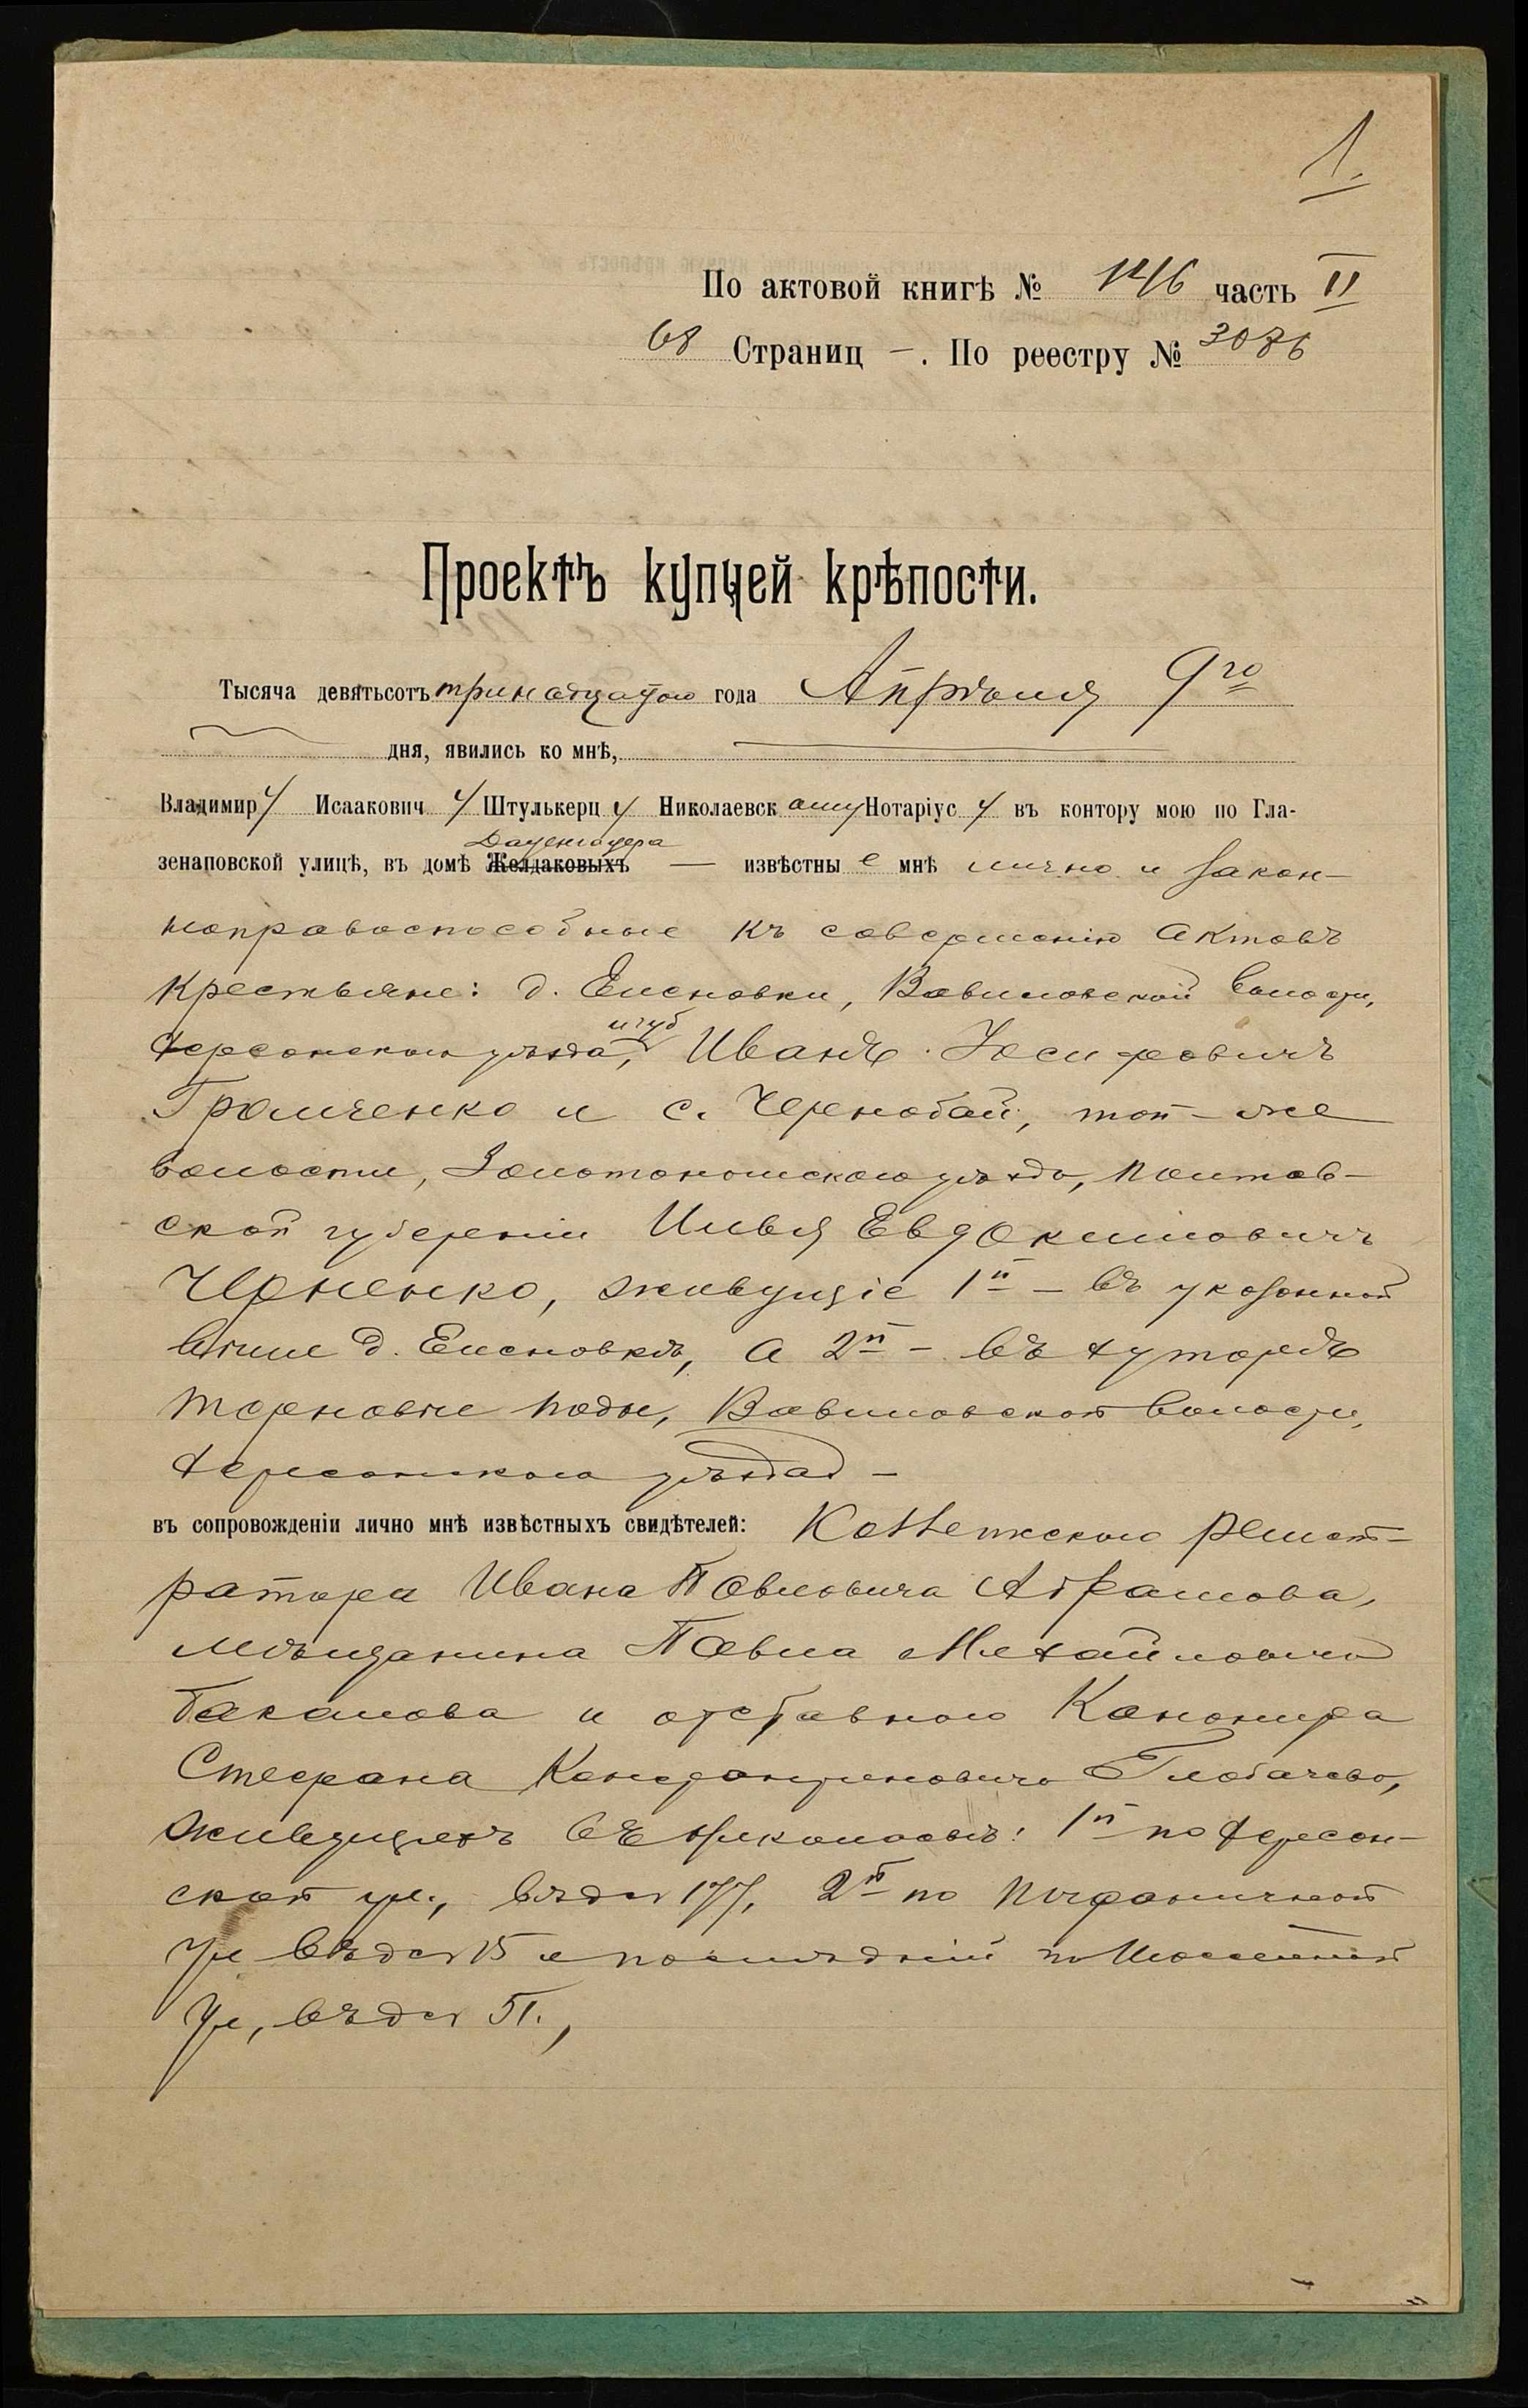 1.
По актовой книгѣ № 1216 часть II
68 Страниц –. По реестру № 3086
Проектъ купчей крѣпости.
Тысяча девятьсотъ тринадцатаго года Апрѣля 9го
дня, явились ко мнѣ,
Владимиру Исааковичу Штулькерцу Николаевскому Нотаріусу въ контору мою по Гла-
зенаповской улицѣ, въ домѣ Желдаковыхъ — извѣстные мнѣ лично и закон-
ноправоспособные къ совершенію актовъ
крестьяне: д. Елисновки, Вавиловской волости,
и губ
Херсонскаго уѣзда, Иванъ Іосифовичъ
Громченко и с. Чернобай, той-же
волости, Золотоношскаго уѣзда, Полтав-
ской губерніи Илья Евдокимовичъ
Черненко, живущіе 1й – въ указанной
выше д. Елисновкѣ, а 2й – въ хуторѣ
Терновые Поды, Вавиловской волости,
Херсонскаго уѣзда –
въ сопровожденіи лично мнѣ извѣстныхъ свидѣтелей: Коллежскаго Регист-
ратора Ивана Павловича Абрамова,
мѣщанина Павла Михайловича
Бакалова и отставного Канонира
Стефана Константиновича Глобачева,
живущихъ въ Николаевѣ: 1й по Херсон-
ской ул., въ д. № 177, 2й по Пограничной
ул въ д. № 15 и послѣдній по
ул, въ д. № 51.,